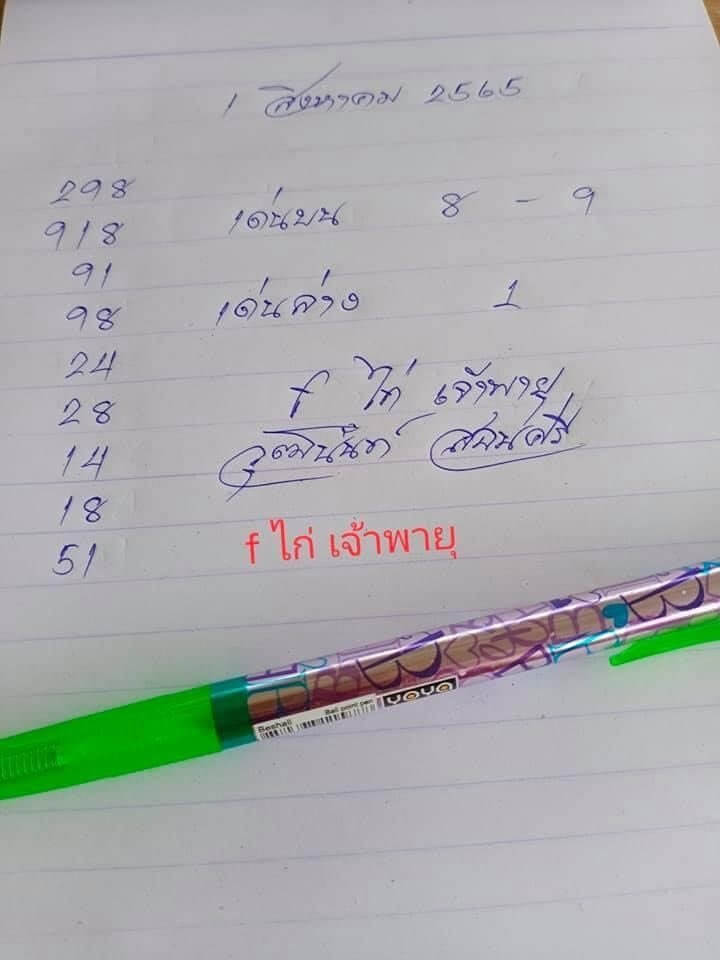 1 สิงหาคม 2565
298
918
เด่นบน 8 - 9
91
98
เด่นล่าง 1
24
28
f ไก่ เจ้าพายุ
14
วุฒินันท์ สอนศรี
18
51
f ไก่ เจ้าพายุ
Beshall Ball point pen YOYO